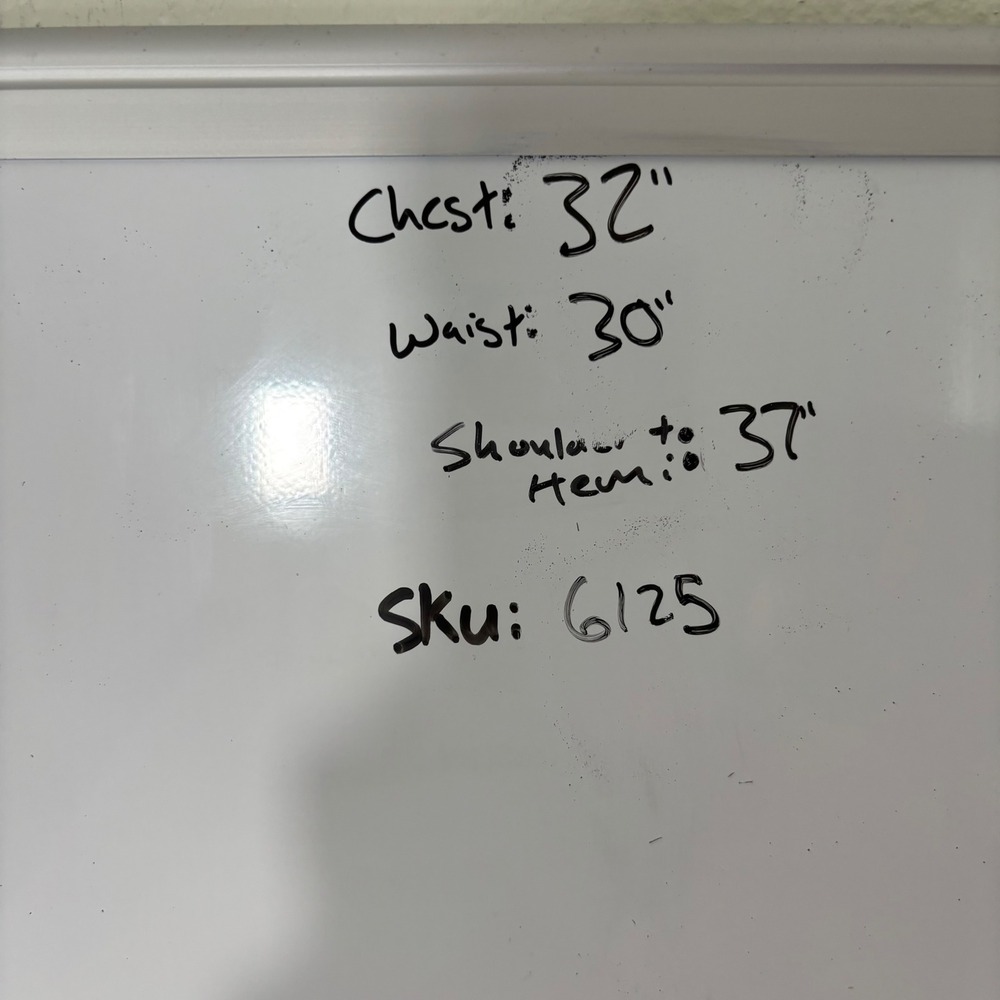 Chest: 32"
Waist: 30"
Shoulder to 37"
Hem:
SKU: 6125